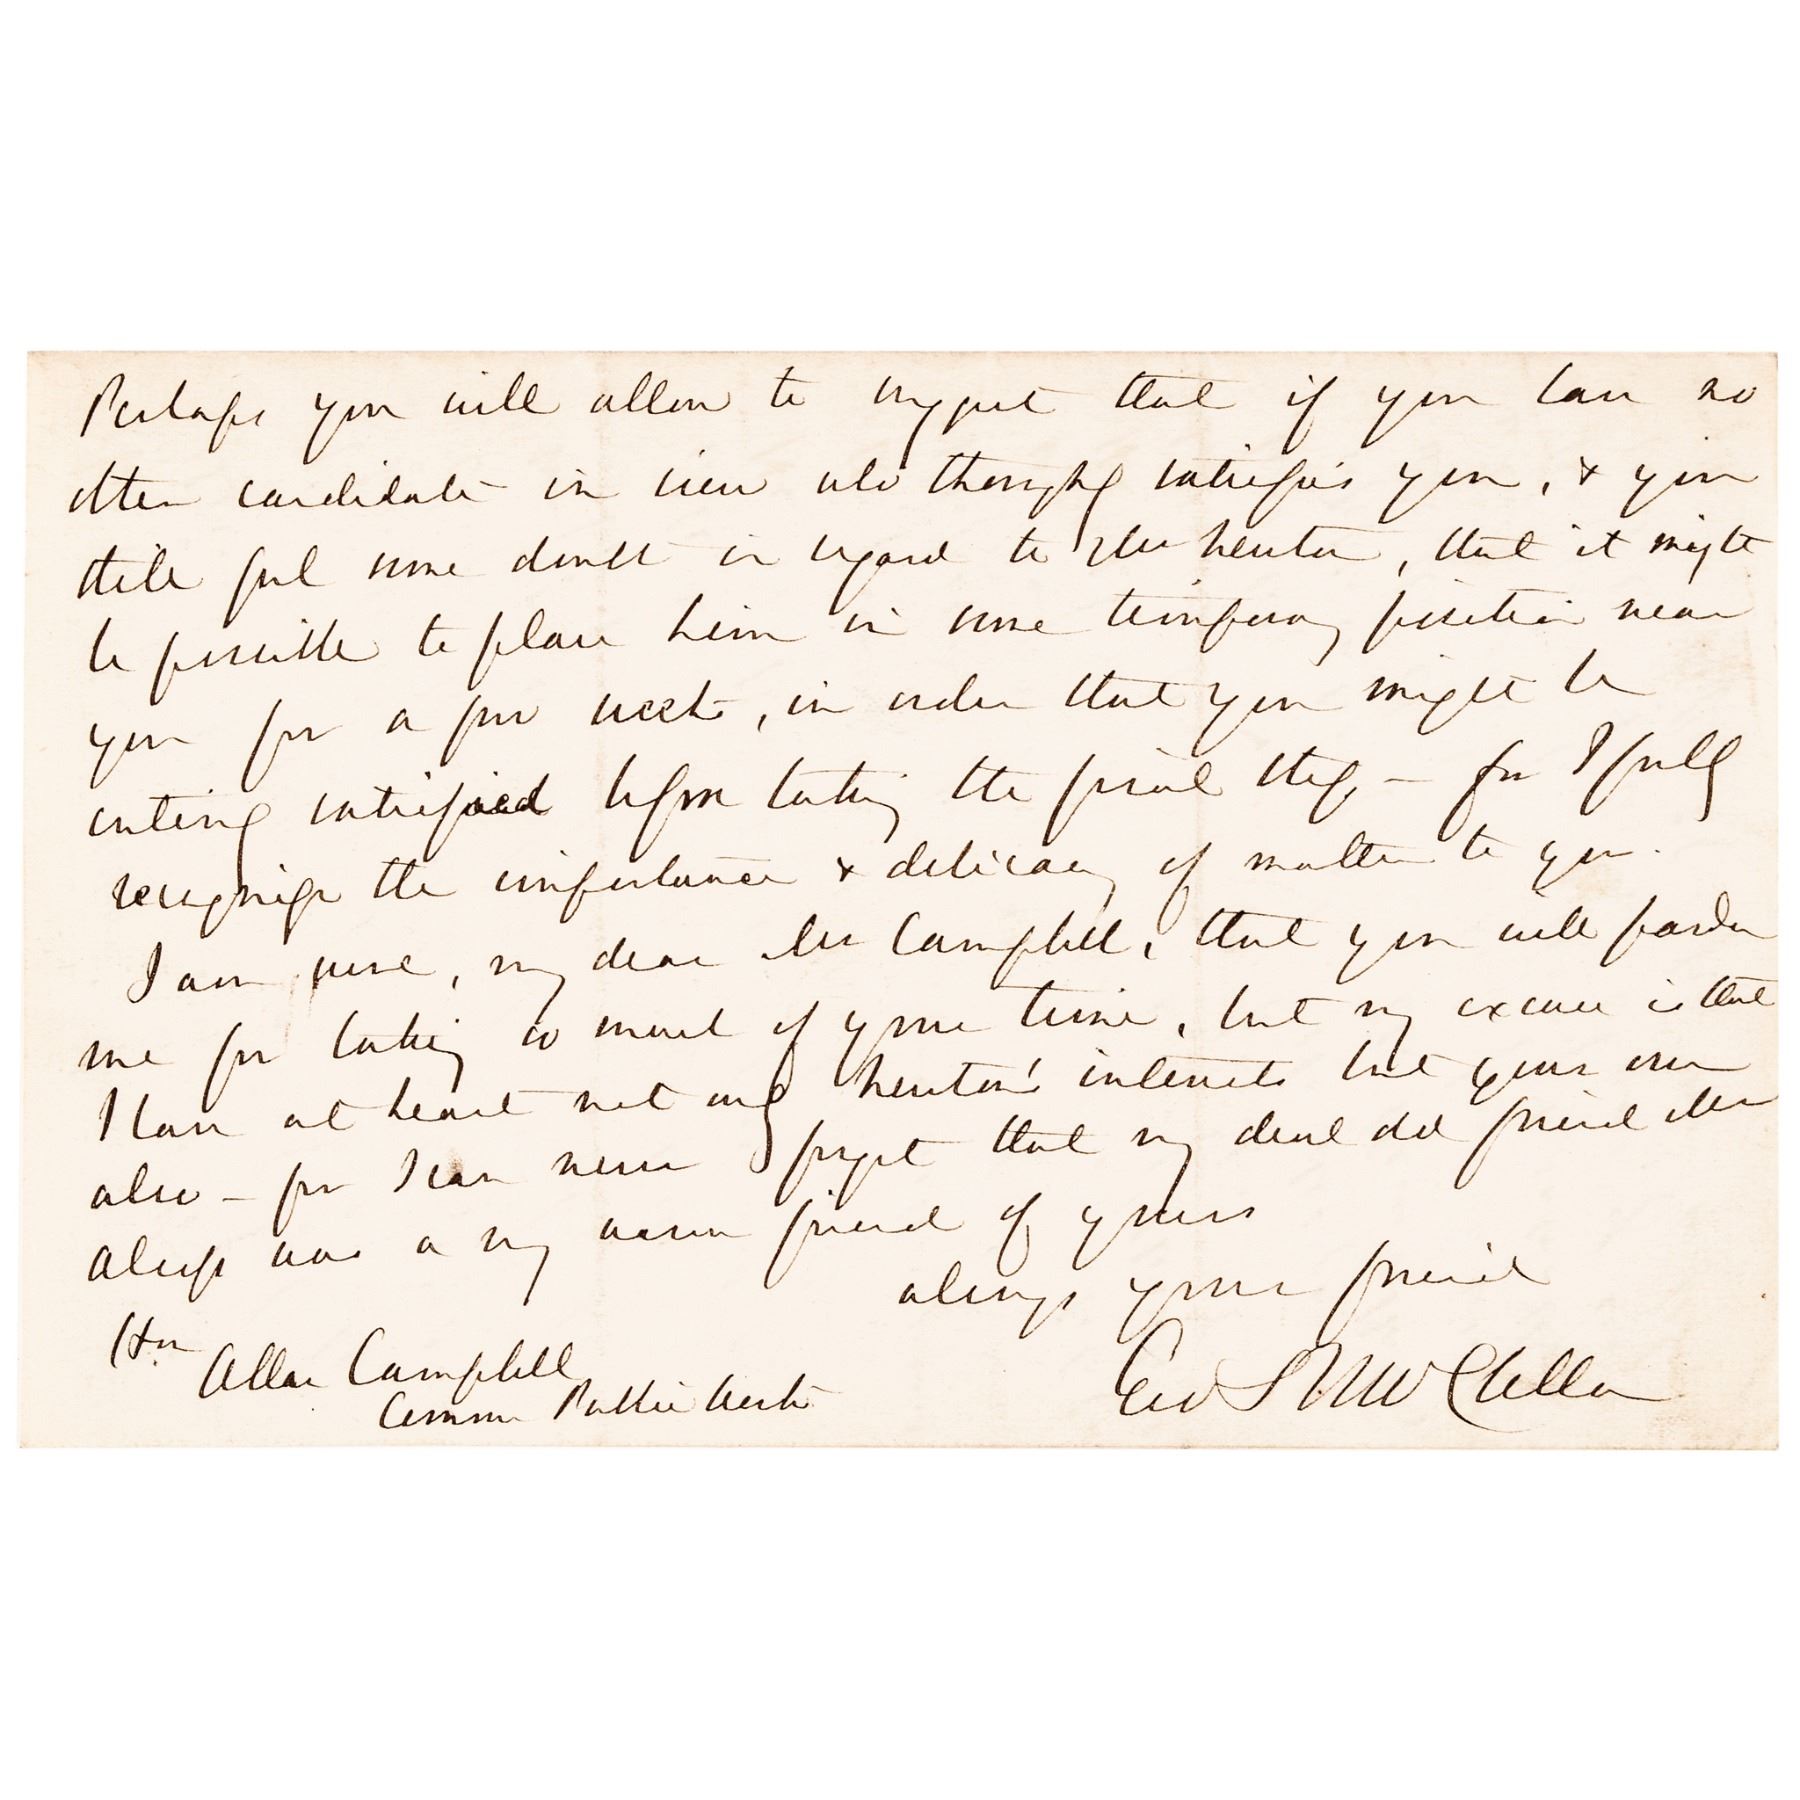 Perhaps you will allow to suggest that if you have no
other candidate in view who thoroughly satisfies you, & you
still feel some doubt in regard to Mr Newton, that it might
be possible to place him in some temporary position near
you for a few weeks, in order that you might be
entirely satisfied before taking the final step — for I fully
recognize the importance & delicacy of matter to you.
I am sure, my dear Mr Campbell, that you will pardon
me for taking so much of your time, but my excuse is that
I have at heart not only Newton's interests but your own
also — for I can never forget that my dead old friend Mr
always was a very warm friend of yours
always your friend
Geo B McClellan
Hon Allan Campbell
Commr Public Works